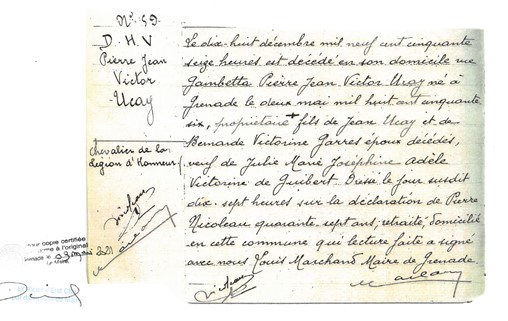 N° 59
D. H V
Pierre Jean
Victor
Ucay
Chevalier de la
Légion d'Honneur
Le dix-huit décembre mil neuf cent cinquante
seize heures est décédé en son domicile rue
Gambetta Pierre Jean Victor Ucay né à
Grenade le deux mai mil huit cent cinquante
six, propriétaire + fils de Jean Ucay et de
Bernande Victorine Garres époux décédés,
veuf de Julie Marie Joséphine Adèle
Victorine de Guibert. Dressé le jour susdit
dix-sept heures sur la déclaration de Pierre
Nicoleau quarante-sept ans, retraité, domicilié
en cette commune qui lecture faite a signé
avec nous Louis Marchand Maire de Grenade.
Nicoleau
Nicoleau
copie certifiée
à l'original
Le Maire